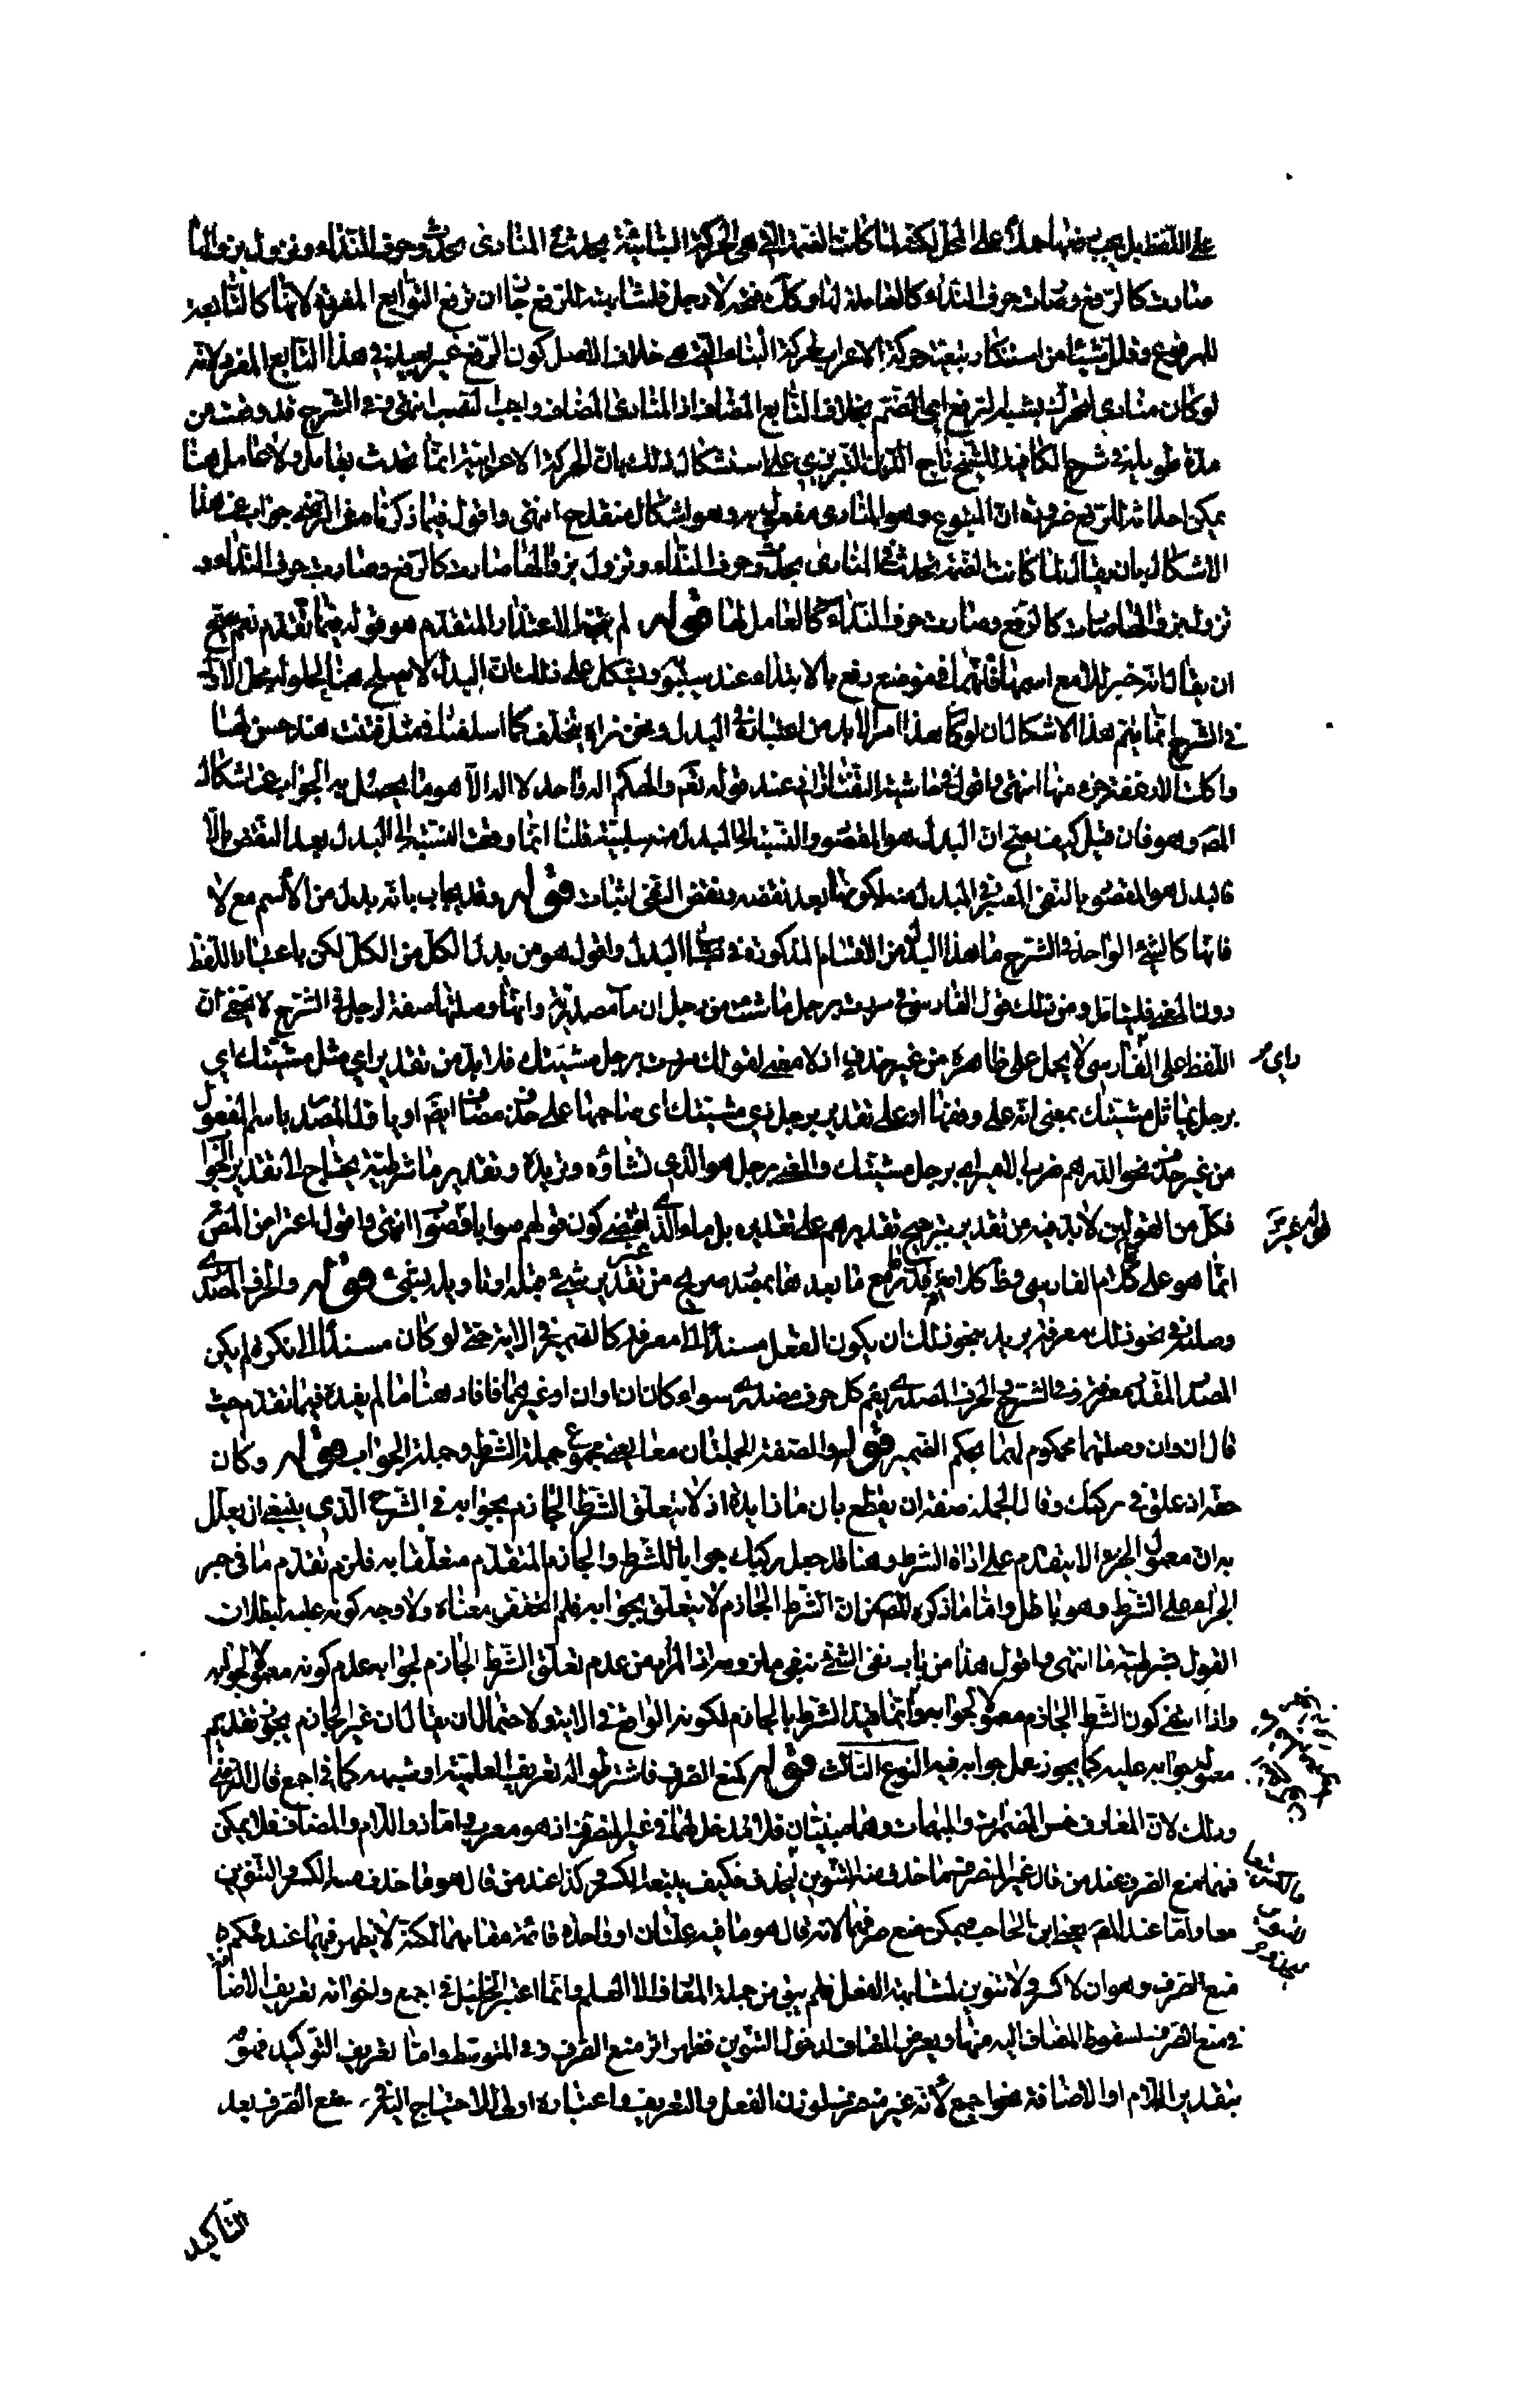 على اللفظ بل يجب نصبها حملا على المحل لكنه لما كانت الضمة التي هي الحركة البنائية بحدث في المنادى بحدوث حرف النداء وتزول بزوالها
صارت كالرفع وصارت حرف النداء كالعاملة لها وكذلك فتحة لا رجل فلمشابهته للرفع جاز ان ترفع التوابع المفردة لانها كالتابعة
للمرفوع وقلل شيئا من استنكار تبعية حركة الاعراب لحركة البناء التي هي خلاف الاصل كون الرفع غير بعيد في هذا التابع المفرد لانه
لو كان منادى لتحرك بشبه الرفع اي الضم بخلاف التابع المضاف اذ المنادى المضاف واجب النصب انتهى وفي الشرح قد وقفت من
مدة طويلة في شرح الكافية للشيخ تاج الدين التبريزي على استشكال ذلك بان الحركة الاعرابية انما تحدث بعامل ولا عامل هنا
يمكن احداثه للرفع ضرورة ان المتبوع وهو المنادى مفعول به وهو اشكال منقدح انتهى واقول فيما ذكرنا من الرضي جواب عن هذا
الاشكال بان يقال لما كانت الضمة تحدث في المنادى بحدوث حرف النداء وتزول بزوالها صارت كالرفع وصارت حرف النداء و
تزول بزوالها صارت كالرفع وصارت حرف النداء كالعامل لها قوله لم يتجه الاعتذار المتقدم هو قوله فيما تقدم نعم يصح
ان يقال انه خبر للا مع اسمها فانهما في موضع رفع بالابتداء عند سيبويه ويشكل على ذلك ان البدل لا يصلح هنا لحلوله محل الاول
في الشرح انما يتم هذا الاشكال ان لو كان هذا امرا لا بد من اعتباره في البدل ونحن نراه يتخلف كما اسلفنا في مثل فتنت هند حسن لها
واكلت الارغفة جزء منها انتهى واقول في حاشية التفتازاني عند قوله نعم والهكم اله واحد لا اله الا هو ما يحصل به الجواب عن اشكال
المص وهو فان قيل كيف يصح ان البدل هو المقصود والنسبة الى المبدل منه سلبية قلنا انما وقعت النسبة الى البدل بعد النقض بالا
فالبدل هو المقصود بالنفي المعتبر في المبدل منه لكونها بعد نقضه ونقض النفي اثبات قوله وقد يجاب بانه بدل من الاسم مع لا
فانها كالشيء الواحد في الشرح ما هذا البدل من الاقسام المذكورة في البدل واقول هو من بدل الكل من الكل لكن باعتبار اللفظ
دون المعنى فليتامل ومن ذلك قول الفارسي في مررت برجل ما شئت من رجل ان ما مصدرية وانها وصلتها صفة لرجل في الشرح لا يخفى ان
اللفظ على راي الفارسي لا يحمل على ظاهره من غير حذف اذ لا معنى لقولك مررت برجل مشيئتك فلا بد من تقدير اي مثل مشيئتك اي
برجل يماثل مشيئتك بمعنى انه على وفقها او على تقدير برجل ذي مشيئتك اي صاحبها على حذف مضاف ايضا او باقامة المصدر باسم المفعول
من غير حذف نحو الدرهم ضرب الامير اي برجل مشيئتك والمعنى برجل هو الذي تشاؤه وتريده وتقدير ما شرطية يحتاج الى تقدير الجواب
فكل من القولين لا بد فيه من تقدير بترجيح تقديرهم على تقديره بل ما الذي يقتضي كون قولهم صوابا قصورا انتهى واقول اعتراض المص
انما هو على كلام الفارسي وظ كلامه مع ما بعدها بمصدر صريح من غير تقدير شيء قبله او تاويله بشيء قوله والحرف المصدري
وصلته في نحو ذلك معرفة يريد بنحو ذلك ان يكون الفعل مسندا الى معرفة كالضمير في الاية حتى لو كان مسندا الى نكرة لم يكن
المصدر المقدر معرفة في الشرح الحرف المصدري يعم كل حرف مصدري سواء كان ان او ان او غيرهما فافاد هنا ما لم يفده فيما تقدم حيث
قال ان وان وصلتهما محكوم لهما بحكم الضمير قوله والصفة الجملتان معا يعني مجموع جملة الشرط وجملة الجواب قوله وكان
حقه اذ علق في بركبك وقال الجملة صفة ان يقطع بان ما زايدة اذ لا يتعلق الشرط الجازم بجوابه في الشرح الذي ينبغي ان يعلل
به ان معمول الجزاء لا يتقدم على اداة الشرط وهنا قد جعل ركبك جوابا للشرط والجازم المتقدم متعلقا به فلزم تقدم ما في حيز
الجزاء على الشرط وهو باطل واما ما ذكره المص من ان الشرط الجازم لا يتعلق بجوابه فلم اتحقق معناه ولا وجه كونه علة لبطلان
القول بشرطية ما انتهى واقول هذا من باب نفي الشيء بنفي ملزومه اذ المراد من عدم تعلق الشرط الجازم لجوابه عدم كونه معمولا لجوابه
واذا انتفى كون الشرط الجازم معمولا لجوابه وانما قيد الشرط بالجازم لكونه الواقع في الاية ولاحتمال ان يقال ان غير الجازم يجوز تقديم
معمول جوابه عليه كما يجوز عمل جوابه فيه النوع الثالث قوله كمنع الصرف فاشترطوا له تعريف العلمية او شبهه كما في اجمع قال الرضي
وذلك لان المعارف خمس المضمرات والمبهمات وهما مبنيتان فلا مدخل لهما في غير المنصرف اذ هو معرب واما ذو اللام والمضاف فلا يمكن
فيهما منع الصرف عند من قال غير المنصرف ما حذف منه التنوين ليحذف فكيف يتبعه الكسر وكذا عند من قال هو ما حذف منه الكسر والتنوين
معا واما عند المص يعني ابن الحاجب فيمكن منع صرفهما لانه قال هو ما فيه علتان او واحدة قائمة مقامهما لكنه لا يظهر فيهما عنده حكم
منع الصرف وهو ان لا كسر ولا تنوين لمشابهته الفعل فلم يبق من جملة المعارف الا العلم وانما اعتبر الخليل في اجمع واخواته تعريف الاضافة
في منع الصرف لسقوط المضاف اليه منها وبعرض المضاف لدخول التنوين فظهر اثر منع الصرف وفي المتوسط واما تعريف التوكيد فهو
بتقدير اللام او الاضافة نحو اجمع لانه غير منصرف لوزن الفعل والتعريف واعتباره اولى للاحتياج اليه في منع الصرف بعد
التاكيد